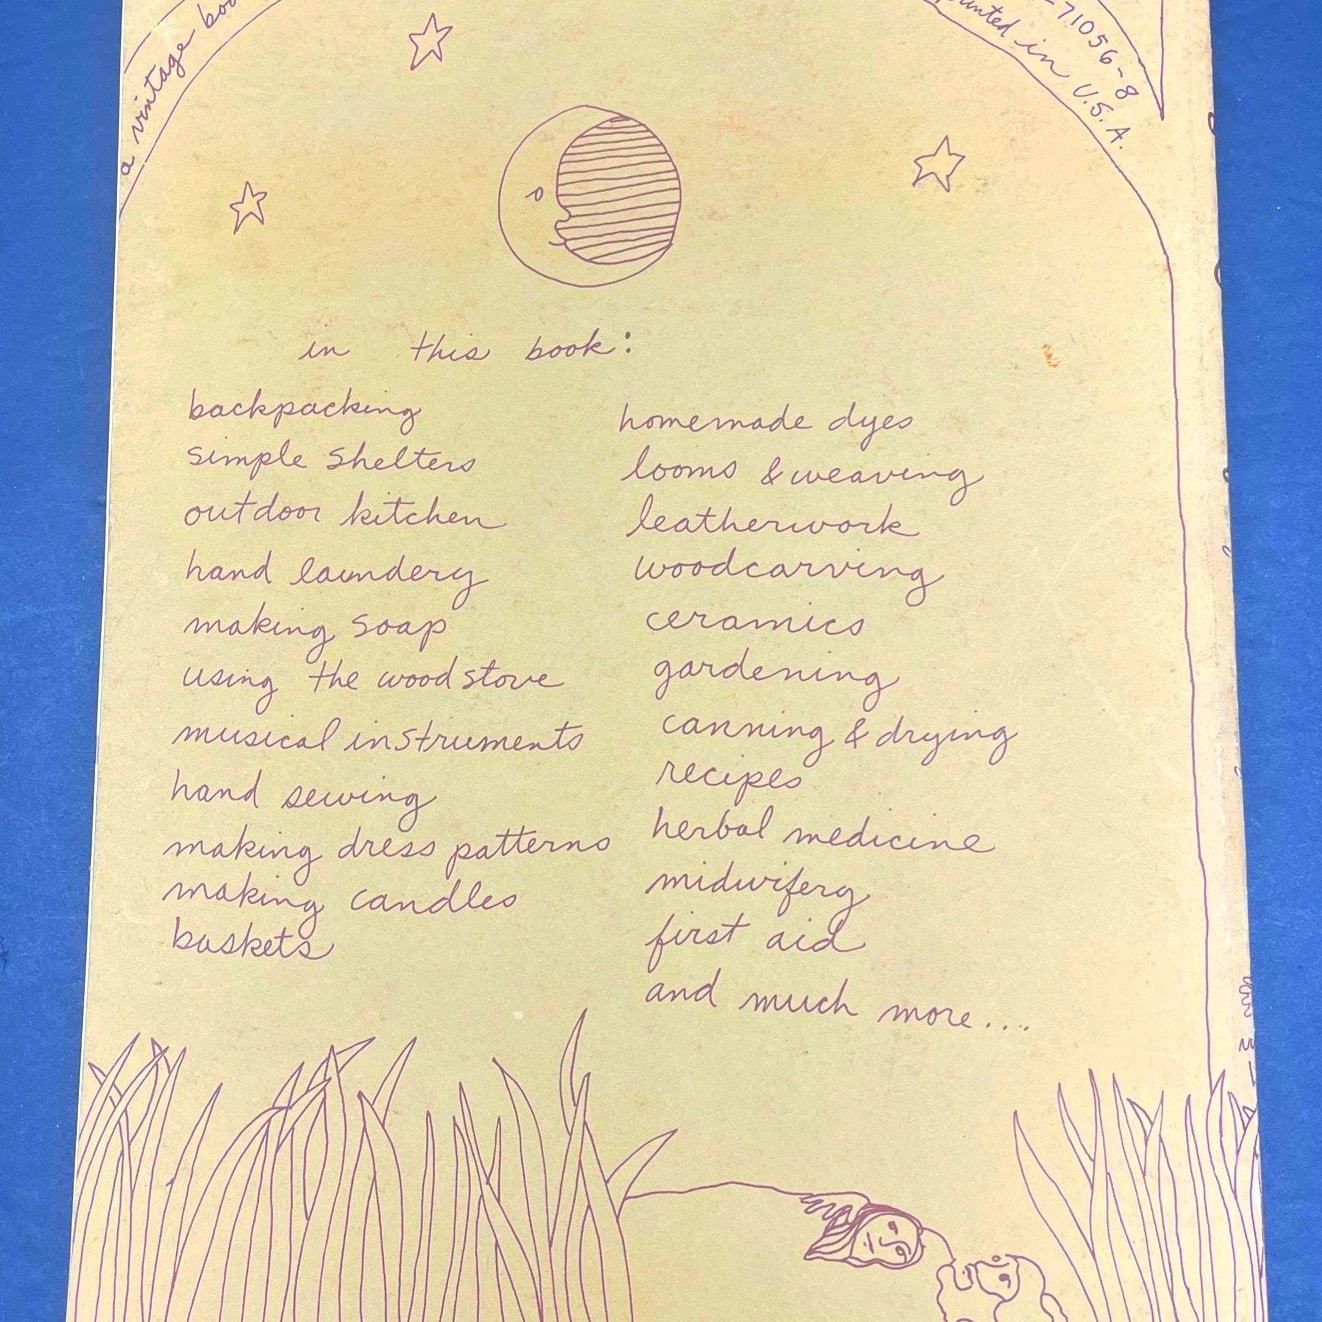 a vintage boo
-71056-8
printed in U.S.A.
in this book:
backpacking
simple shelters
outdoor kitchen
hand laundery
making soap
using the wood stove
musical instruments
hand sewing
making dress patterns
making candles
baskets
homemade dyes
looms & weaving
leatherwork
woodcarving
ceramics
gardening
canning & drying
recipes
herbal medicine
midwifery
first aid
and much more....